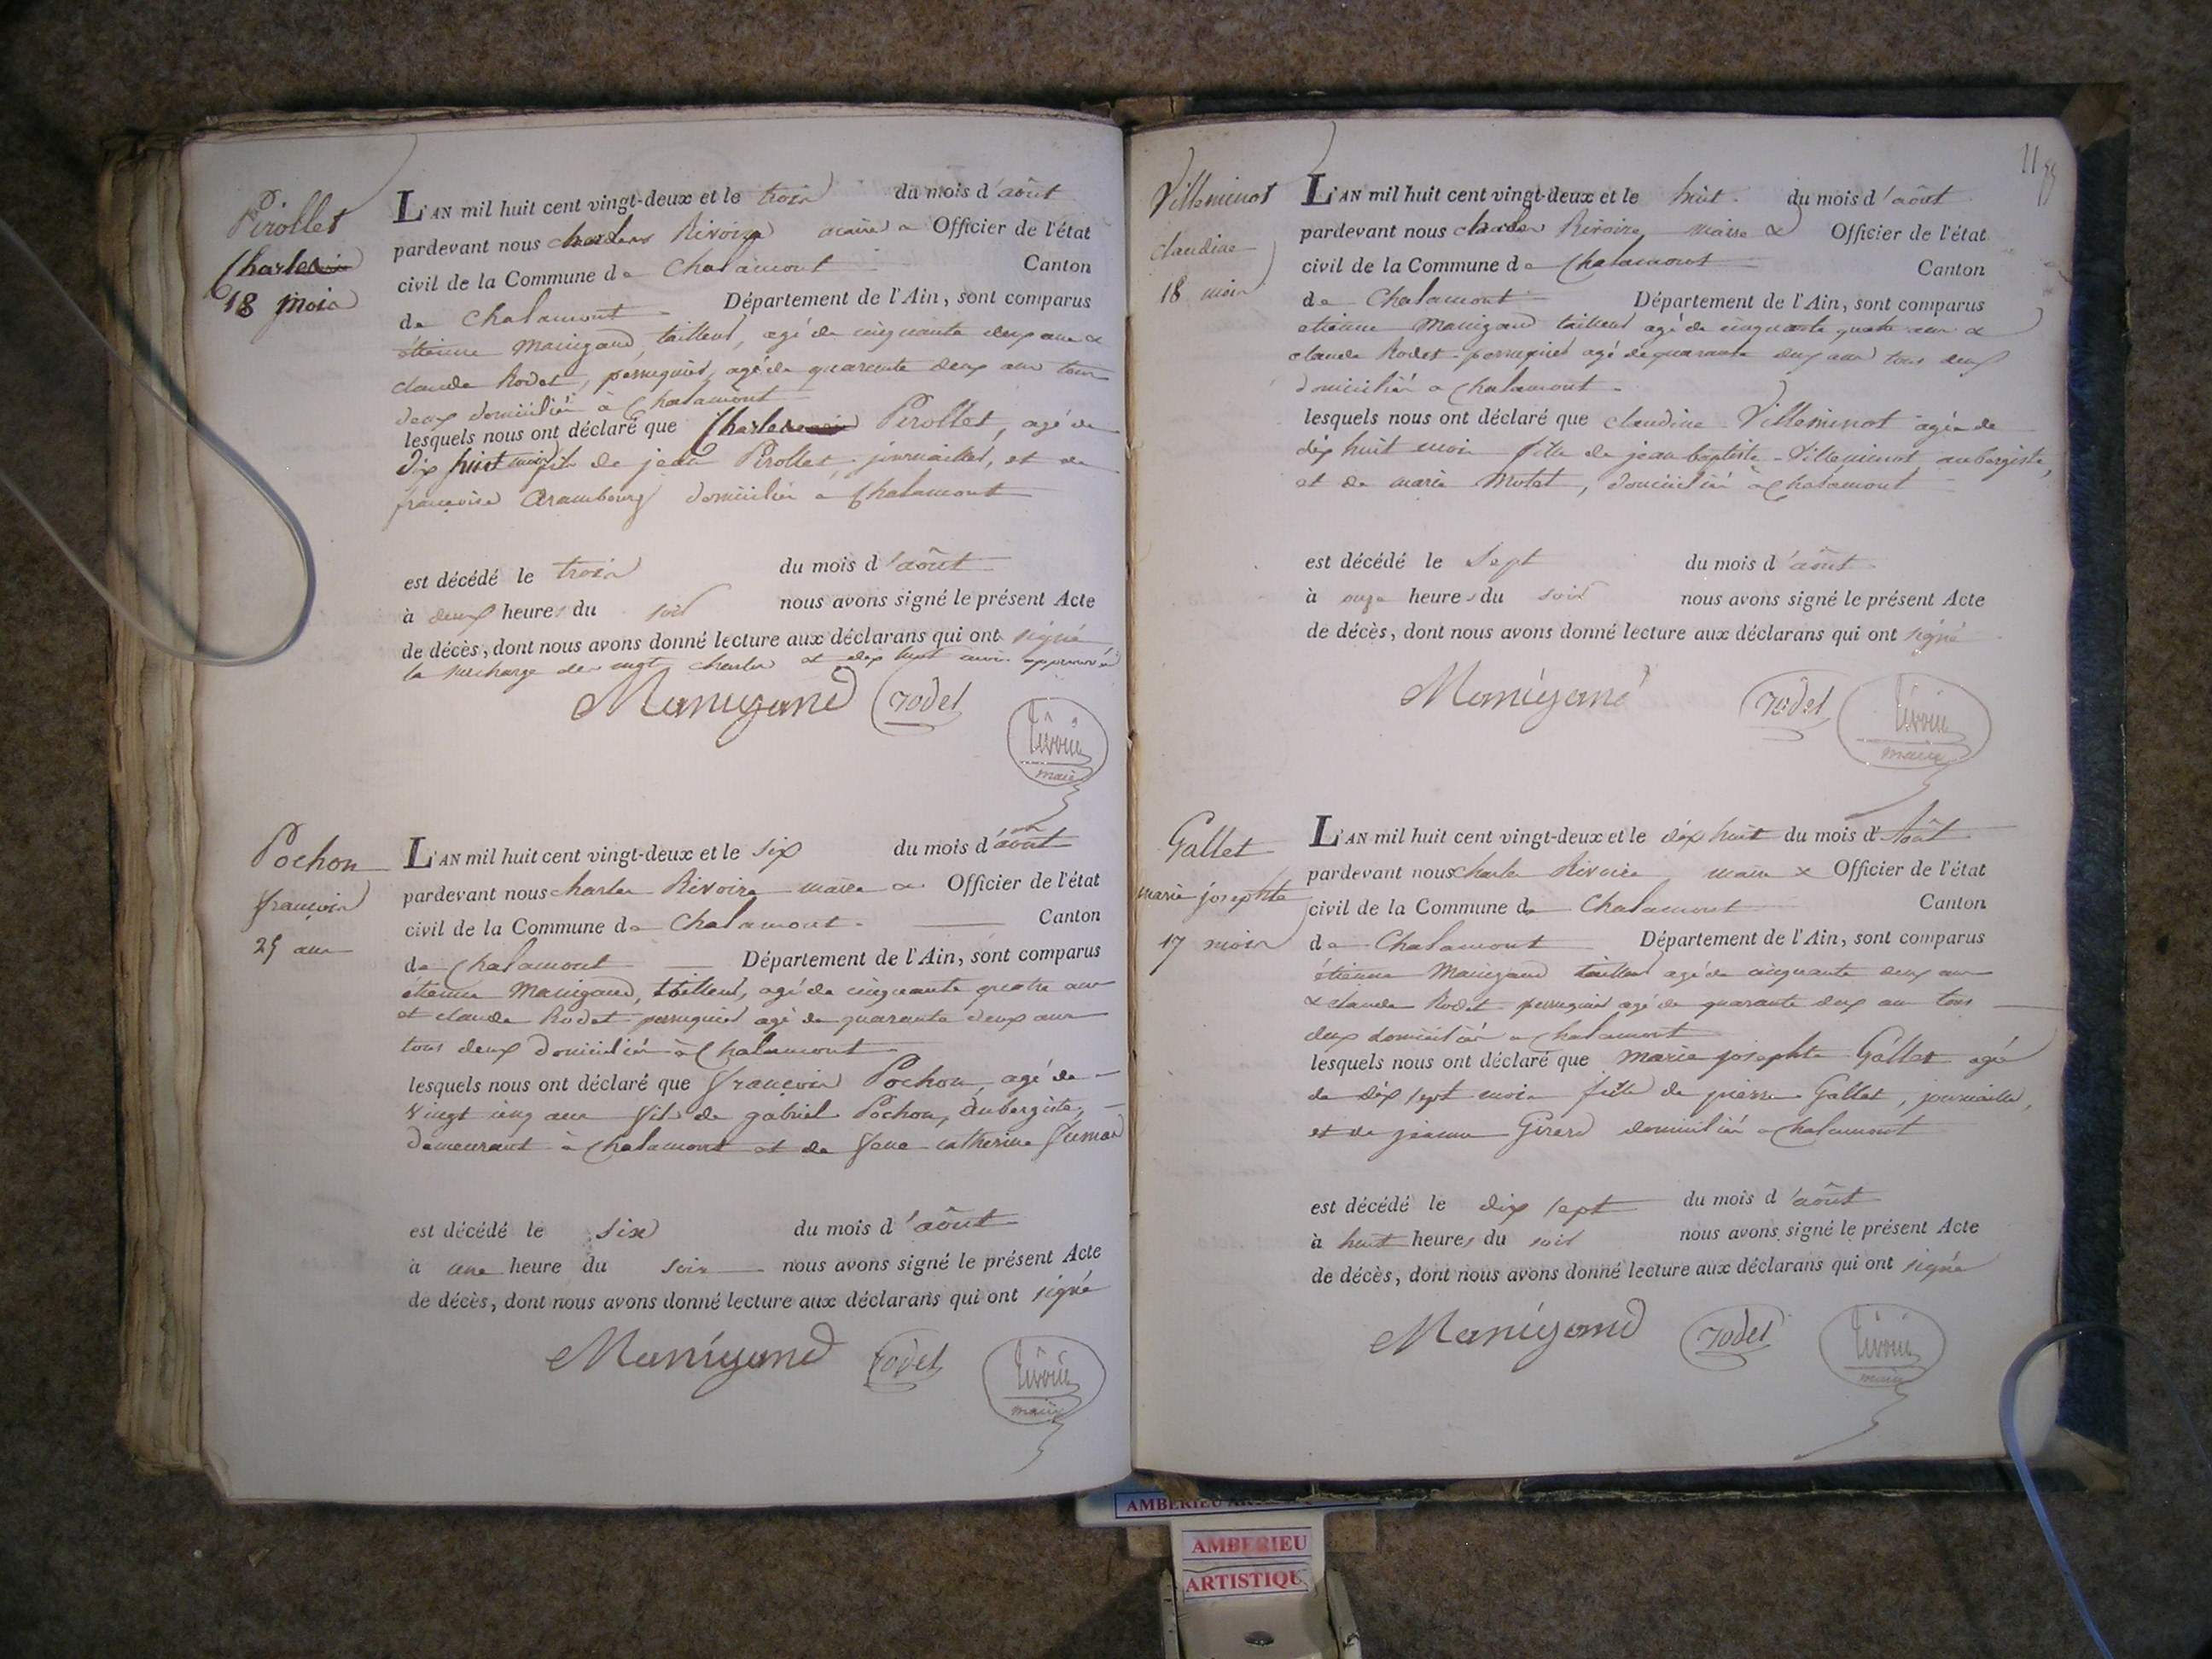 Pirollet
Charles
18 mois
L'AN mil huit cent vingt-deux et le trois du mois d'août
pardevant nous charles Rivoire maire & Officier de l'état
civil de la Commune de Chalamont Canton
de Chalamont Département de l'Ain, sont comparus
étienne Manigand, tailleur, agé de cinquante deux ans &
claude Rodet, perruquier, agé de quarante deux ans tous
deux domiciliés à Chalamont
lesquels nous ont déclaré que Charles Pirollet, agé de
dix huit mois fils de jean Pirollet journailler, et de
françoise Arambourg domiciliés à Chalamont
est décédé le trois du mois d'août
à deux heures du soir nous avons signé le présent Acte
de décès, dont nous avons donné lecture aux déclarans qui ont signé
la surcharge des mots charles et dix huit mois approuvée
Manigand rodet Rivoire
maire
Pochon
françois
25 ans
L'AN mil huit cent vingt-deux et le six du mois d'août
pardevant nous charles Rivoire maire & Officier de l'état
civil de la Commune de Chalamont Canton
de Chalamont Département de l'Ain, sont comparus
étienne Manigand, tailleur, agé de cinquante quatre ans
et claude Rodet perruquier agé de quarante deux ans
tous deux domiciliés à Chalamont
lesquels nous ont déclaré que françois Pochon, agé de
vingt cinq ans fils de gabriel Pochon, aubergiste,
demeurant à Chalamont et de feue catherine
est décédé le six du mois d'août
à une heure du soir nous avons signé le présent Acte
de décès, dont nous avons donné lecture aux déclarans qui ont signé
Manigand rodet Rivoire
maire
Villeminot
claudine
18 mois
L'AN mil huit cent vingt-deux et le huit du mois d'août
pardevant nous charles Rivoire maire & Officier de l'état
civil de la Commune de Chalamont Canton
de Chalamont Département de l'Ain, sont comparus
etienne Manigand tailleur agé de cinquante quatre ans &
claude Rodet perruquier agé de quarante deux ans tous deux
domiciliés à Chalamont
lesquels nous ont déclaré que claudine Villeminot agée de
dix huit mois fille de jean baptiste Villeminot aubergiste,
et de marie Motet, domiciliés à Chalamont
est décédé le sept du mois d'août
à onze heures du soir nous avons signé le présent Acte
de décès, dont nous avons donné lecture aux déclarans qui ont signé
Manigand rodet Rivoire
maire
Gallet
marie josephte
17 mois
L'AN mil huit cent vingt-deux et le dix huit du mois d'Août
pardevant nous charles Rivoire maire & Officier de l'état
civil de la Commune de Chalamont Canton
de Chalamont Département de l'Ain, sont comparus
étienne Manigand tailleur agé de cinquante deux ans
& claude Rodet perruquier agé de quarante deux ans tous
deux domiciliés à Chalamont
lesquels nous ont déclaré que marie josephte Gallet agée
de dix sept mois fille de pierre Gallet, journailler,
et de jeanne Girerd domiciliés à Chalamont
est décédé le dix sept du mois d'août
à huit heures du soir nous avons signé le présent Acte
de décès, dont nous avons donné lecture aux déclarans qui ont signé
Manigand rodet Rivoire
maire
AMBERIEU
AMBERIEU
ARTISTIQU